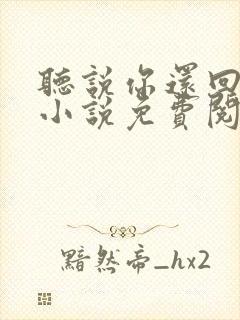 聽說你還回
小說免費閱
黯然帝_hx2